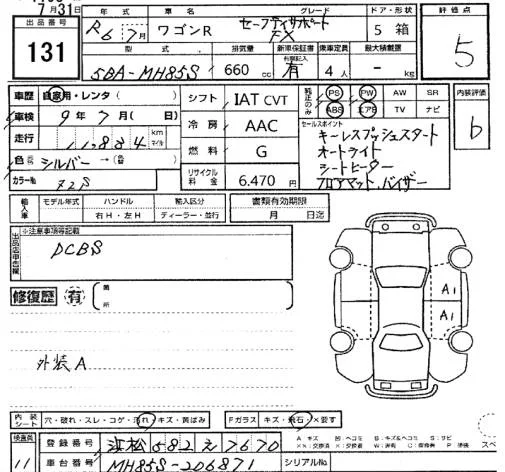 7月31日
出品番号 131
年式 R6年7月 車名 ワゴンR グレード セーフティサポート FX ドア・形状 5 箱 評価点 5
型式 5BA-MH85S 排気量 660 cc 新車保証書 有 乗車定員 4人 最大積載量 - kg
車歴 自家用・レンタ( )
シフト IAT CVT
PS PW AW SR
ABS エアB TV ナビ
内装評価 b
車検 9年7月( 日)
冷房 AAC
セールスポイント
キーレスプッシュスタート
オートライト
シートヒーター
フロアマット、バイザー
走行 11,884 km マイル
燃料 G
色 シルバー→( )
リサイクル料金 6.470円
カラーNo. Z2S
輸入車 モデル年式 ハンドル 右H・左H 輸入区分 ディーラー・並行 書類有効期限 月 日迄
出品店申告欄 ※注意事項等記載
DCBS
修復歴 有 ( 箇所 )
A1
A1
外装A
内装シート 穴・破れ・スレ・コゲ・汚れ・キズ・黄ばみ Fガラス キズ・飛石・×要す
検査員 11
登録番号 浜松582え7670
A キズ
車台番号 MH85S-206871 シリアルNo.